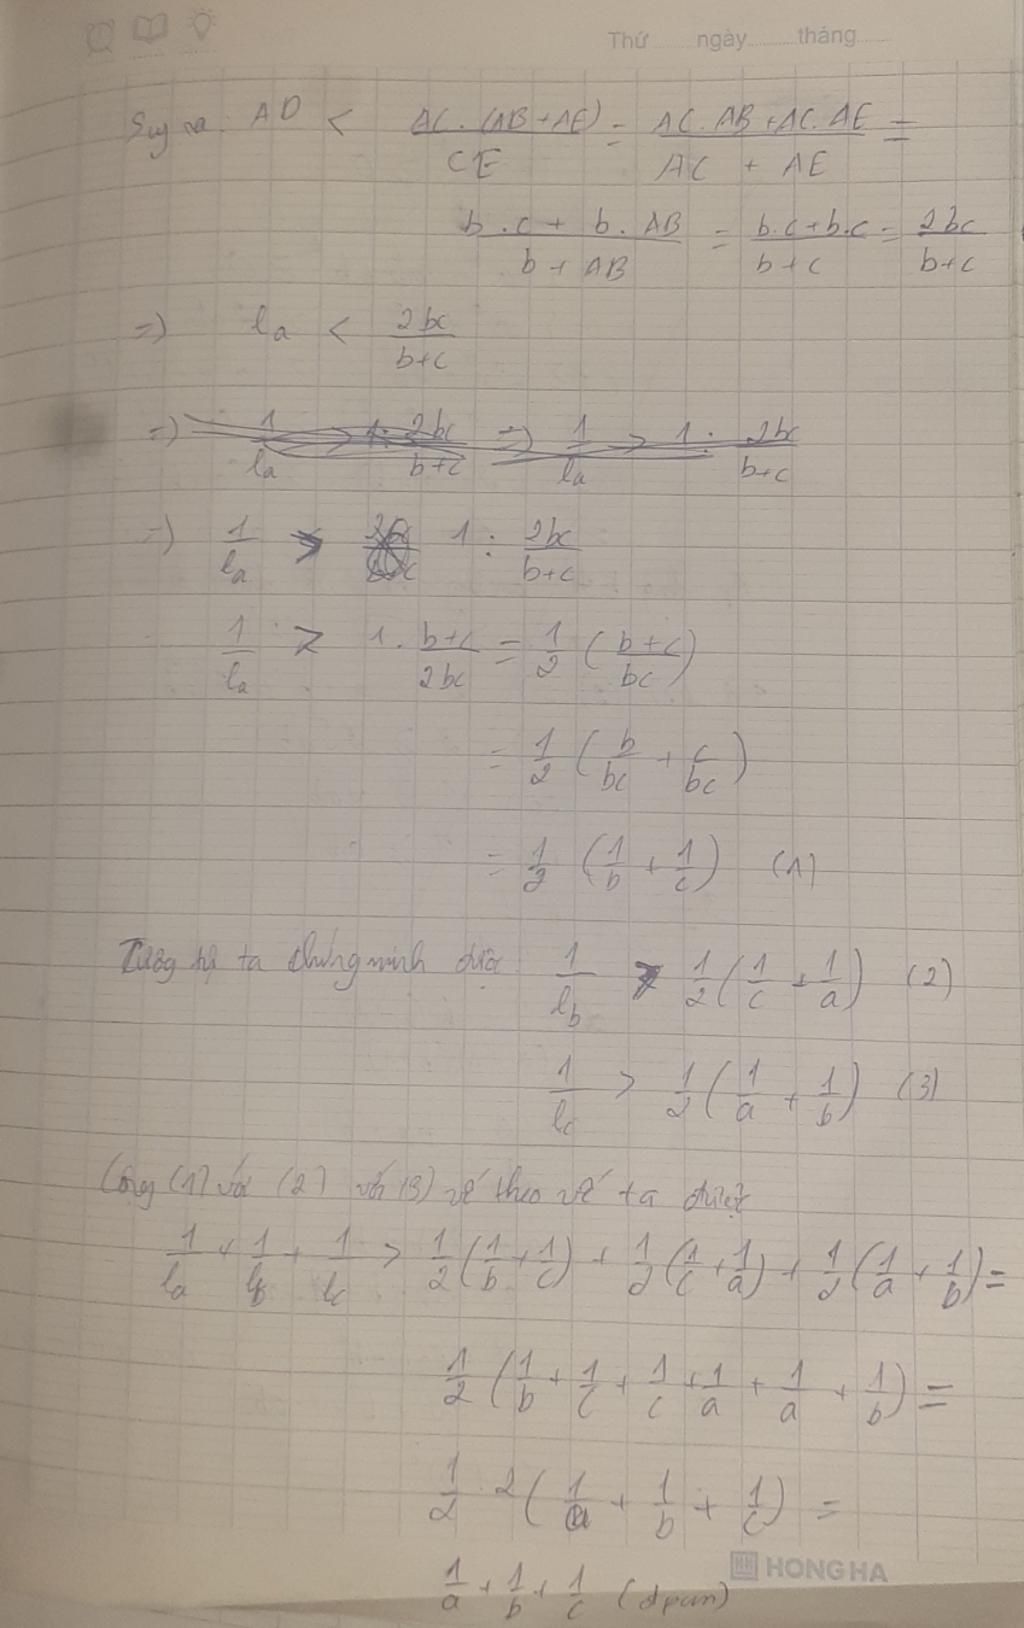 Thứ ngày tháng
Suy ra: AD < AC.(AB+AE)/CE = (AC.AB+AC.AE)/(AC + AE) =
(b.c + b.AB)/(b + AB) = (b.c+b.c)/(b+c) = 2bc/(b+c)
=) la < 2bc/(b+c)
=) 1/la > 1: 2bc/(b+c) =) 1/la > 1: 2bc/(b+c)
=) 1/la > 1: 2bc/(b+c)
1/la > 1. (b+c)/2bc = 1/2 ((b+c)/bc)
= 1/2 (b/bc + c/bc)
= 1/2 (1/b + 1/c) (1)
Tương tự ta chứng minh được 1/lb > 1/2 (1/c + 1/a) (2)
1/lc > 1/2 (1/a + 1/b) (3)
Cộng (1) với (2) với (3) vế theo vế ta được
1/la + 1/lb + 1/lc > 1/2 (1/b + 1/c) + 1/2 (1/c + 1/a) + 1/2 (1/a + 1/b) =
1/2 (1/b + 1/c + 1/c + 1/a + 1/a + 1/b) =
1/2 . 2 (1/a + 1/b + 1/c) =
HONG HA
1/a + 1/b + 1/c (đpcm)